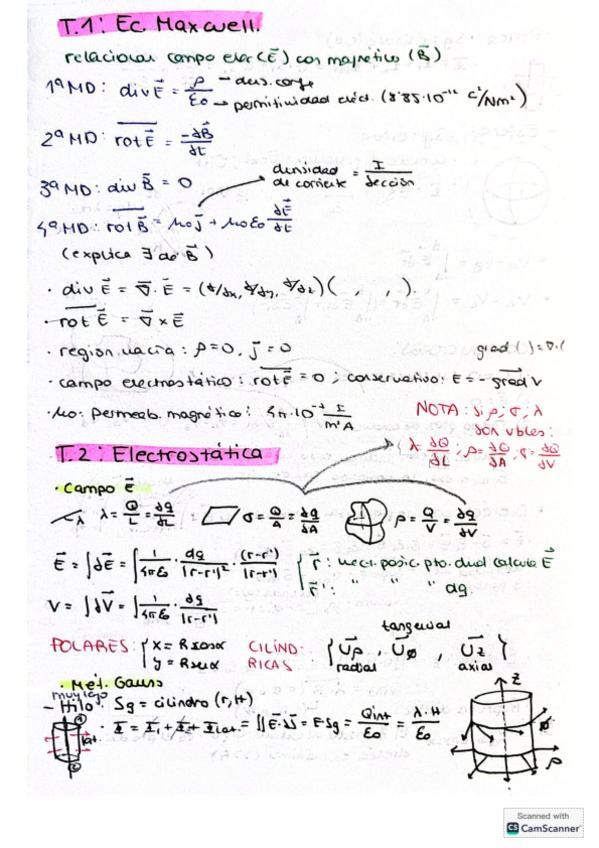 T.1: Ec. Maxwell.
relacionar campo elec (E⃗) con magnético (B⃗)
1ª MD: div E⃗ = ρ/ε0 → dens. carga
→ permitividad eléct. (8'85·10⁻¹² C²/Nm²)
2ª MD: rot E⃗ = -∂B⃗/∂t
3ª MD: div B⃗ = 0
densidad de corriente = I/sección
4ª MD: rot B⃗ = μ0 j⃗ + μ0 ε0 ∂E⃗/∂t
(explica ∃ de B⃗)
· div E⃗ = ∇⃗ · E⃗ = (∂/∂x, ∂/∂y, ∂/∂z)( , , ).
· rot E⃗ = ∇⃗ × E⃗
· región vacía: ρ=0, j⃗=0
grad ( ) = ∇·(
· campo electrostático: rot E⃗ = 0 ; conservativo: E = - grad V
· μ0: permeab. magnético: 4π·10⁻⁷ I/m²A
NOTA: si ρ; σ; λ
son vbles:
(λ = ∂Q/∂L ; ρ = ∂Q/∂A, σ = ∂Q/∂V
T.2: Electrostática
· Campo E⃗
λ λ = Q/L = dq/dL σ = Q/A = dq/dA ρ = Q/V = dq/dV
E⃗ = ∫dE⃗ = ∫ 1/4πε0 · dq/|r-r'|² · (r-r')/|r-r'|
{ r⃗: vect. posic. pto. dnd calcula E⃗
r⃗': " " " dq.
V = ∫dV⃗ = ∫ 1/4πε0 · dq/|r-r'|
tangencial
POLARES: { x = R cosα
y = R senα
CILÍNDRICAS { Uρ⃗, Uø⃗, Uz⃗ }
radial axial
· Mét. Gauss
muy lejo
- Hilo: Sg = cilindro (r, H)
· Φ = Φ1 + Φ2 + Φlat = ∬E⃗·dS⃗ = E·Sg = Qint/ε0 = λ·H/ε0
Z
ø
ρ
Scanned with
CS CamScanner